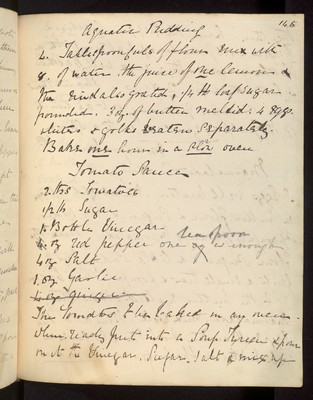 146
Aquatic Pudding
2. Tablespoonfuls of flour mix with
8. of water. the juice of one lemon &
the rind also grated, 1/4 lb loaf sugar
pounded. 3 oz. of butter melted. 4 Eggs.
whites & yolks beaten separately.
Bake one hour in a slow oven
Tomato Sauce
2. lbs Tomatoes
1/2 lb Sugar
1. Bottle Vinegar
oz red pepper one teaspoon is enough
4 oz Salt
1. oz Garlic
4 oz Ginger
The Tomatoes to be baked in an oven.
when ready put into a Soup Tureen & pour
on it the Vinegar. Sugar. Salt & mix up